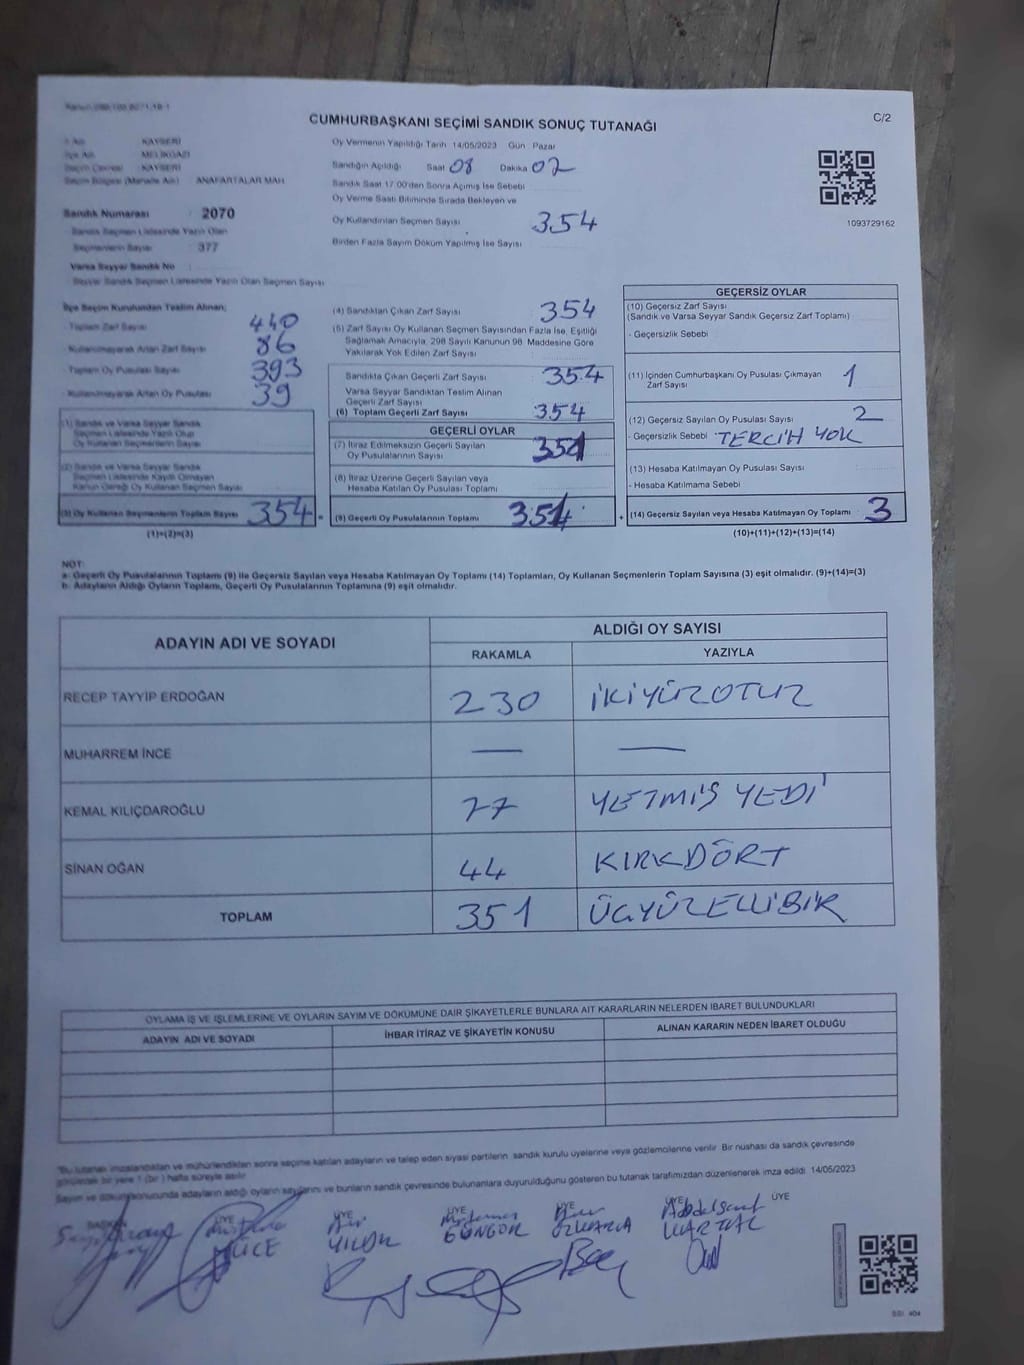 C/2
CUMHURBAŞKANI SEÇİMİ SANDIK SONUÇ TUTANAĞI
İl Adı : KAYSERİ
İlçe Adı : MELİKGAZİ
Seçim Çevresi : KAYSERİ
Seçim Bölgesi (Mahalle Adı) : ANAFARTALAR MAH.
Sandık Numarası : 2070
Sandık Seçmen Listesinde Yazılı Olan
Seçmenlerin Sayısı : 377
Varsa Seyyar Sandık No :
Seyyar Sandık Seçmen Listesinde Yazılı Olan Seçmen Sayısı :
Oy Vermenin Yapıldığı Tarih 14/05/2023 Gün Pazar
Sandığın Açıldığı Saat 08 Dakika 02
Sandık Saat 17:00'den Sonra Açmış İse Sebebi
Oy Verme Saati Bitiminde Sırada Bekleyen ve
Oy Kullandırılan Seçmen Sayısı 354
Birden Fazla Sayım Döküm Yapılmış İse Sayısı
1093729162
İlçe Seçim Kurulundan Teslim Alınan;
- Toplam Zarf Sayısı 440
- Kullanılmayarak Artan Zarf Sayısı 86
- Toplam Oy Pusulası Sayısı 393
- Kullanılmayarak Artan Oy Pusulası 39
(1) Sandık ve Varsa Seyyar Sandık
Seçmen Listesinde Yazılı Olup
Oy Kullanan Seçmenlerin Sayısı
(2) Sandık ve Varsa Seyyar Sandık
Seçmen Listesinde Kayıtlı Olmayan
Kanun Gereği Oy Kullanan Seçmen Sayısı
(3) Oy Kullanan Seçmenlerin Toplam Sayısı 354 =
(1)+(2)=(3)
(4) Sandıktan Çıkan Zarf Sayısı 354
(5) Zarf Sayısı Oy Kullanan Seçmen Sayısından Fazla İse, Eşitliği
Sağlamak Amacıyla, 298 Sayılı Kanunun 98. Maddesine Göre
Yakılarak Yok Edilen Zarf Sayısı
Sandıkta Çıkan Geçerli Zarf Sayısı 354
Varsa Seyyar Sandıktan Teslim Alınan
Geçerli Zarf Sayısı
(6) Toplam Geçerli Zarf Sayısı 354
GEÇERLİ OYLAR
(7) İtiraz Edilmeksizin Geçerli Sayılan
Oy Pusulalarının Sayısı 351
(8) İtiraz Üzerine Geçerli Sayılan veya
Hesaba Katılan Oy Pusulası Toplamı
(9) Geçerli Oy Pusulalarının Toplamı 351 +
GEÇERSİZ OYLAR
(10) Geçersiz Zarf Sayısı
(Sandık ve Varsa Seyyar Sandık Geçersiz Zarf Toplamı)
- Geçersizlik Sebebi
(11) İçinden Cumhurbaşkanı Oy Pusulası Çıkmayan
Zarf Sayısı 1
(12) Geçersiz Sayılan Oy Pusulası Sayısı 2
- Geçersizlik Sebebi TERCİH YOK
(13) Hesaba Katılmayan Oy Pusulası Sayısı
- Hesaba Katılmama Sebebi
(14) Geçersiz Sayılan veya Hesaba Katılmayan Oy Toplamı 3
(10)+(11)+(12)+(13)=(14)
NOT:
a- Geçerli Oy Pusulalarının Toplamı (9) ile Geçersiz Sayılan veya Hesaba Katılmayan Oy Toplamı (14) Toplamları, Oy Kullanan Seçmenlerin Toplam Sayısına (3) eşit olmalıdır. (9)+(14)=(3)
b- Adayların Aldığı Oyların Toplamı, Geçerli Oy Pusulalarının Toplamına (9) eşit olmalıdır.
ADAYIN ADI VE SOYADI ALDIĞI OY SAYISI
RAKAMLA YAZIYLA
RECEP TAYYİP ERDOĞAN 230 İKİYÜZOTUZ
MUHARREM İNCE — —
KEMAL KILIÇDAROĞLU 77 YETMİŞ YEDİ
SİNAN OĞAN 44 KIRKDÖRT
TOPLAM 351 ÜÇYÜZELLİBİR
OYLAMA İŞ VE İŞLEMLERİNE VE OYLARIN SAYIM VE DÖKÜMÜNE DAİR ŞİKAYETLERLE BUNLARA AİT KARARLARIN NELERDEN İBARET BULUNDUKLARI
ADAYIN ADI VE SOYADI İHBAR İTİRAZ VE ŞİKAYETİN KONUSU ALINAN KARARIN NEDEN İBARET OLDUĞU
"Bu tutanak imzalandıktan ve mühürlendikten sonra seçime katılan adayların ve talep eden siyasi partilerin sandık kurulu üyelerine veya gözlemcilerine verilir. Bir nüshası da sandık çevresinde
görülecek bir yere 1 (bir) hafta süreyle asılır.
Sayım ve döküm sonucunda adayların aldığı oyların sayılarını ve bunların sandık çevresinde bulunanlara duyurulduğunu gösteren bu tutanak tarafımızdan düzenlenerek imza edildi. 14/05/2023
BAŞKAN ÜYE ÜYE ÜYE ÜYE ÜYE ÜYE
GÜNGÖR ÖZKARCA KARTAL